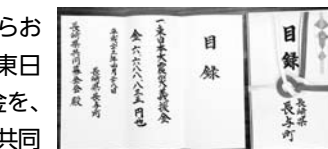 らお
東日
金を、
共同
目録
一東日本大震災義援金
金 六、六八八、八三五 円也
長崎県長与町
長崎県共同募金会 殿
目録
長崎県
長与町